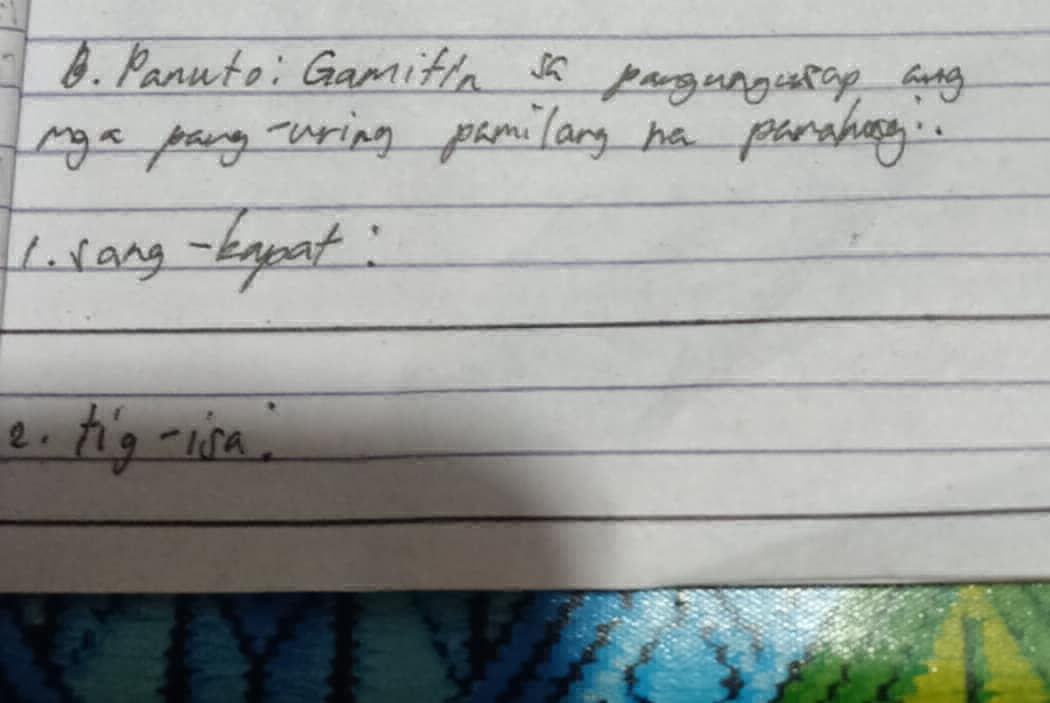 B. Panuto: Gamitin sa pangungusap ang
mga pang-uring pamilang na panahong..
1. sang-kapat:
2. tig-isa: